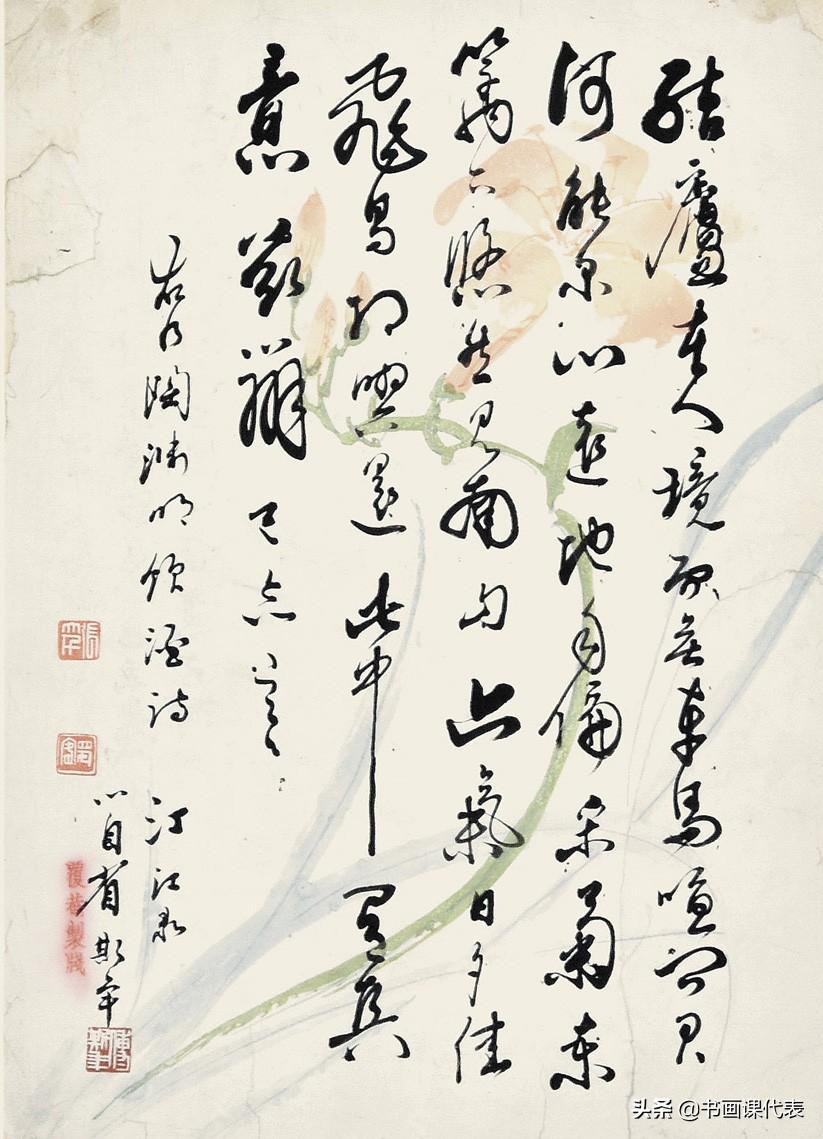 結廬在人境而無車馬喧問君
何能尔心遠地自偏采菊東
篱下悠然見南山山氣日夕佳
飛鳥相與還此中有真
意欲辯已忘言
右乃陶淵明飲酒詩
自省 斯年
头条 @书画课代表